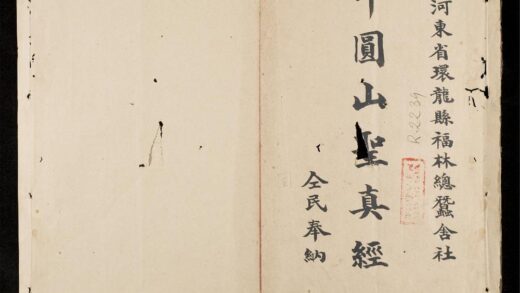 河東省環龍縣福林總蠶舍社
R.2239
圓山聖真經
仝民奉納